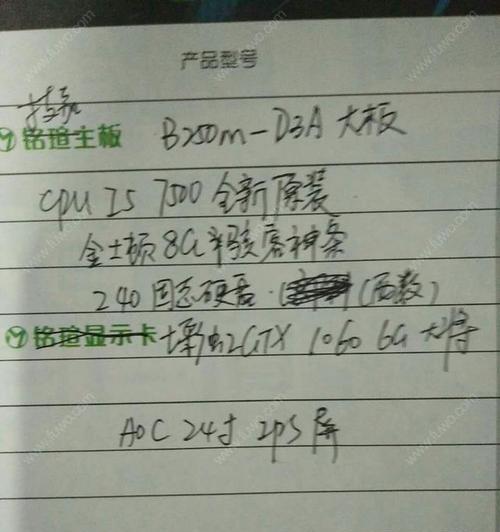 产品型号
技嘉
铭瑄主板 B250m-D3A 大板
CPU I5 7500 全新原装
金士顿 8G 骇客神条
240 固态硬盘 (西数)
铭瑄显示卡 影驰GTX 1060 6G 大将
AOC 24寸 2PS 屏